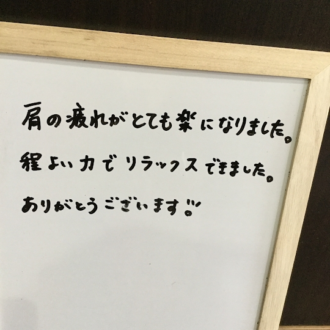 肩の疲れがとても楽になりました。
程よい力でリラックスできました。
ありがとうございます!!